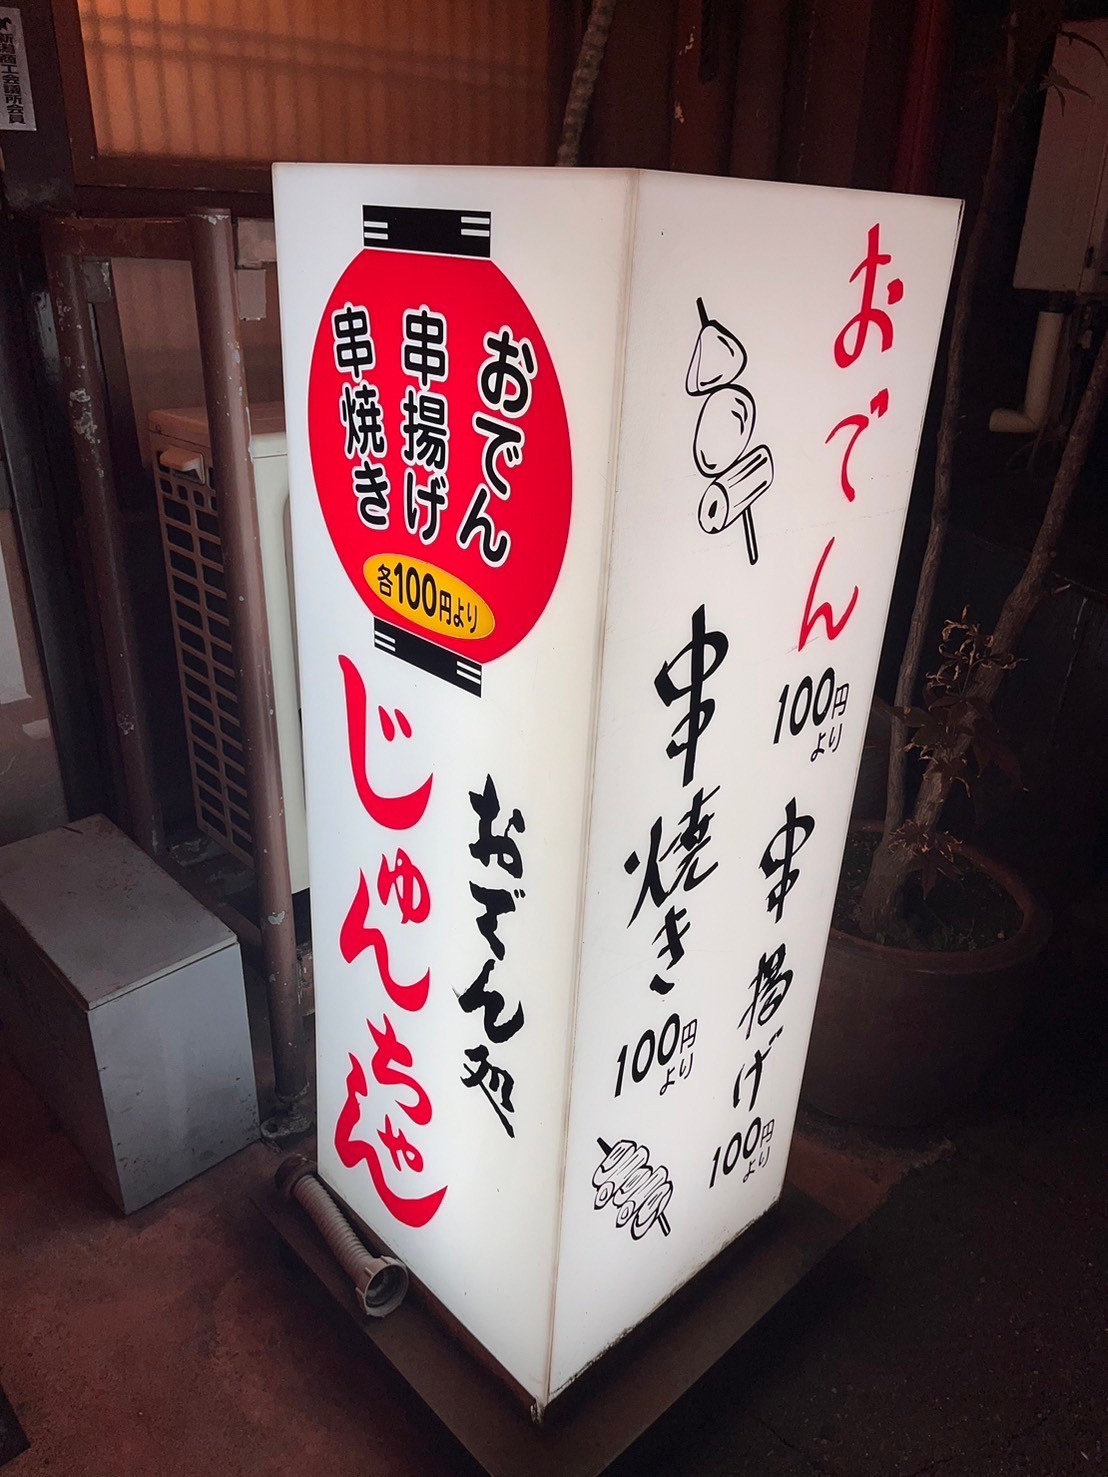 新潟商工会議所会員
おでん
串揚げ
串焼き
各100円より
おでん処
じゅんちゃん
おでん
100円より
串揚げ
100円より
串焼き
100円より